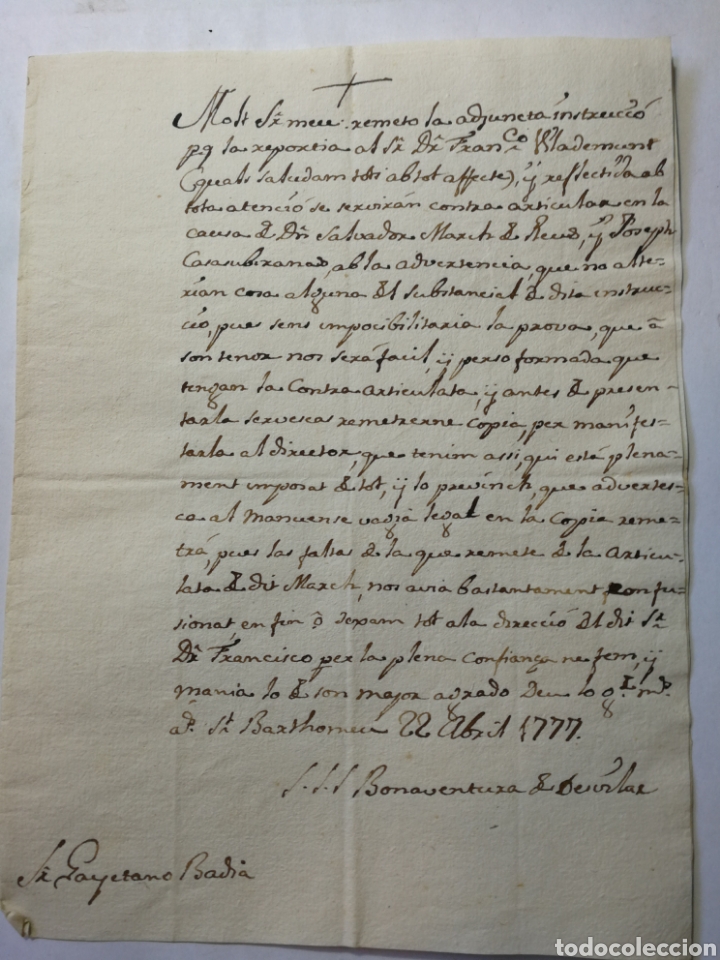 Molt Sr. meu: remeto la adjuncta instrucció
p.q la reportia al Sr. Dr. Franco. Vlademunt
(quals saludam tots ab tot affecte), ÿ reflectida ab
tota atenció se servirán contra articular en la
causa de Dn. Salvador March de Reus, ÿ Joseph
Casasubirana, ab la advertencia, que no alte=
rian cosa alguna del substancial de dita instruc=
ció, pues sens impocibilitaria la prova, que â
son tenor nos será facil, ÿ perso formada que
tengam la Contra Articulata, ÿ antes de presen=
tarla servescas remetrerne copia, per manifes=
tarla al director, que tenim assi, qui está plena=
ment imposat de tot, ÿ lo previnch, que advertes=
ca al Manuense vagia legal en la Copia reme=
trá, pues las faltas de la que remete de la Articu=
lata de dit March, nos avia bastantament confu=
sionat, en fin ò dexam tot a la direcció del dit Sr.
Dr. Francisco per la plena confiança ne fem, ÿ
mania lo de son major agrado Deu lo ge. ms.
as. St. Barthomeu 22 Abril 1777.
S.S.S Bonaventura de Desvilar
Sr. Gayetano Badia
todocoleccion